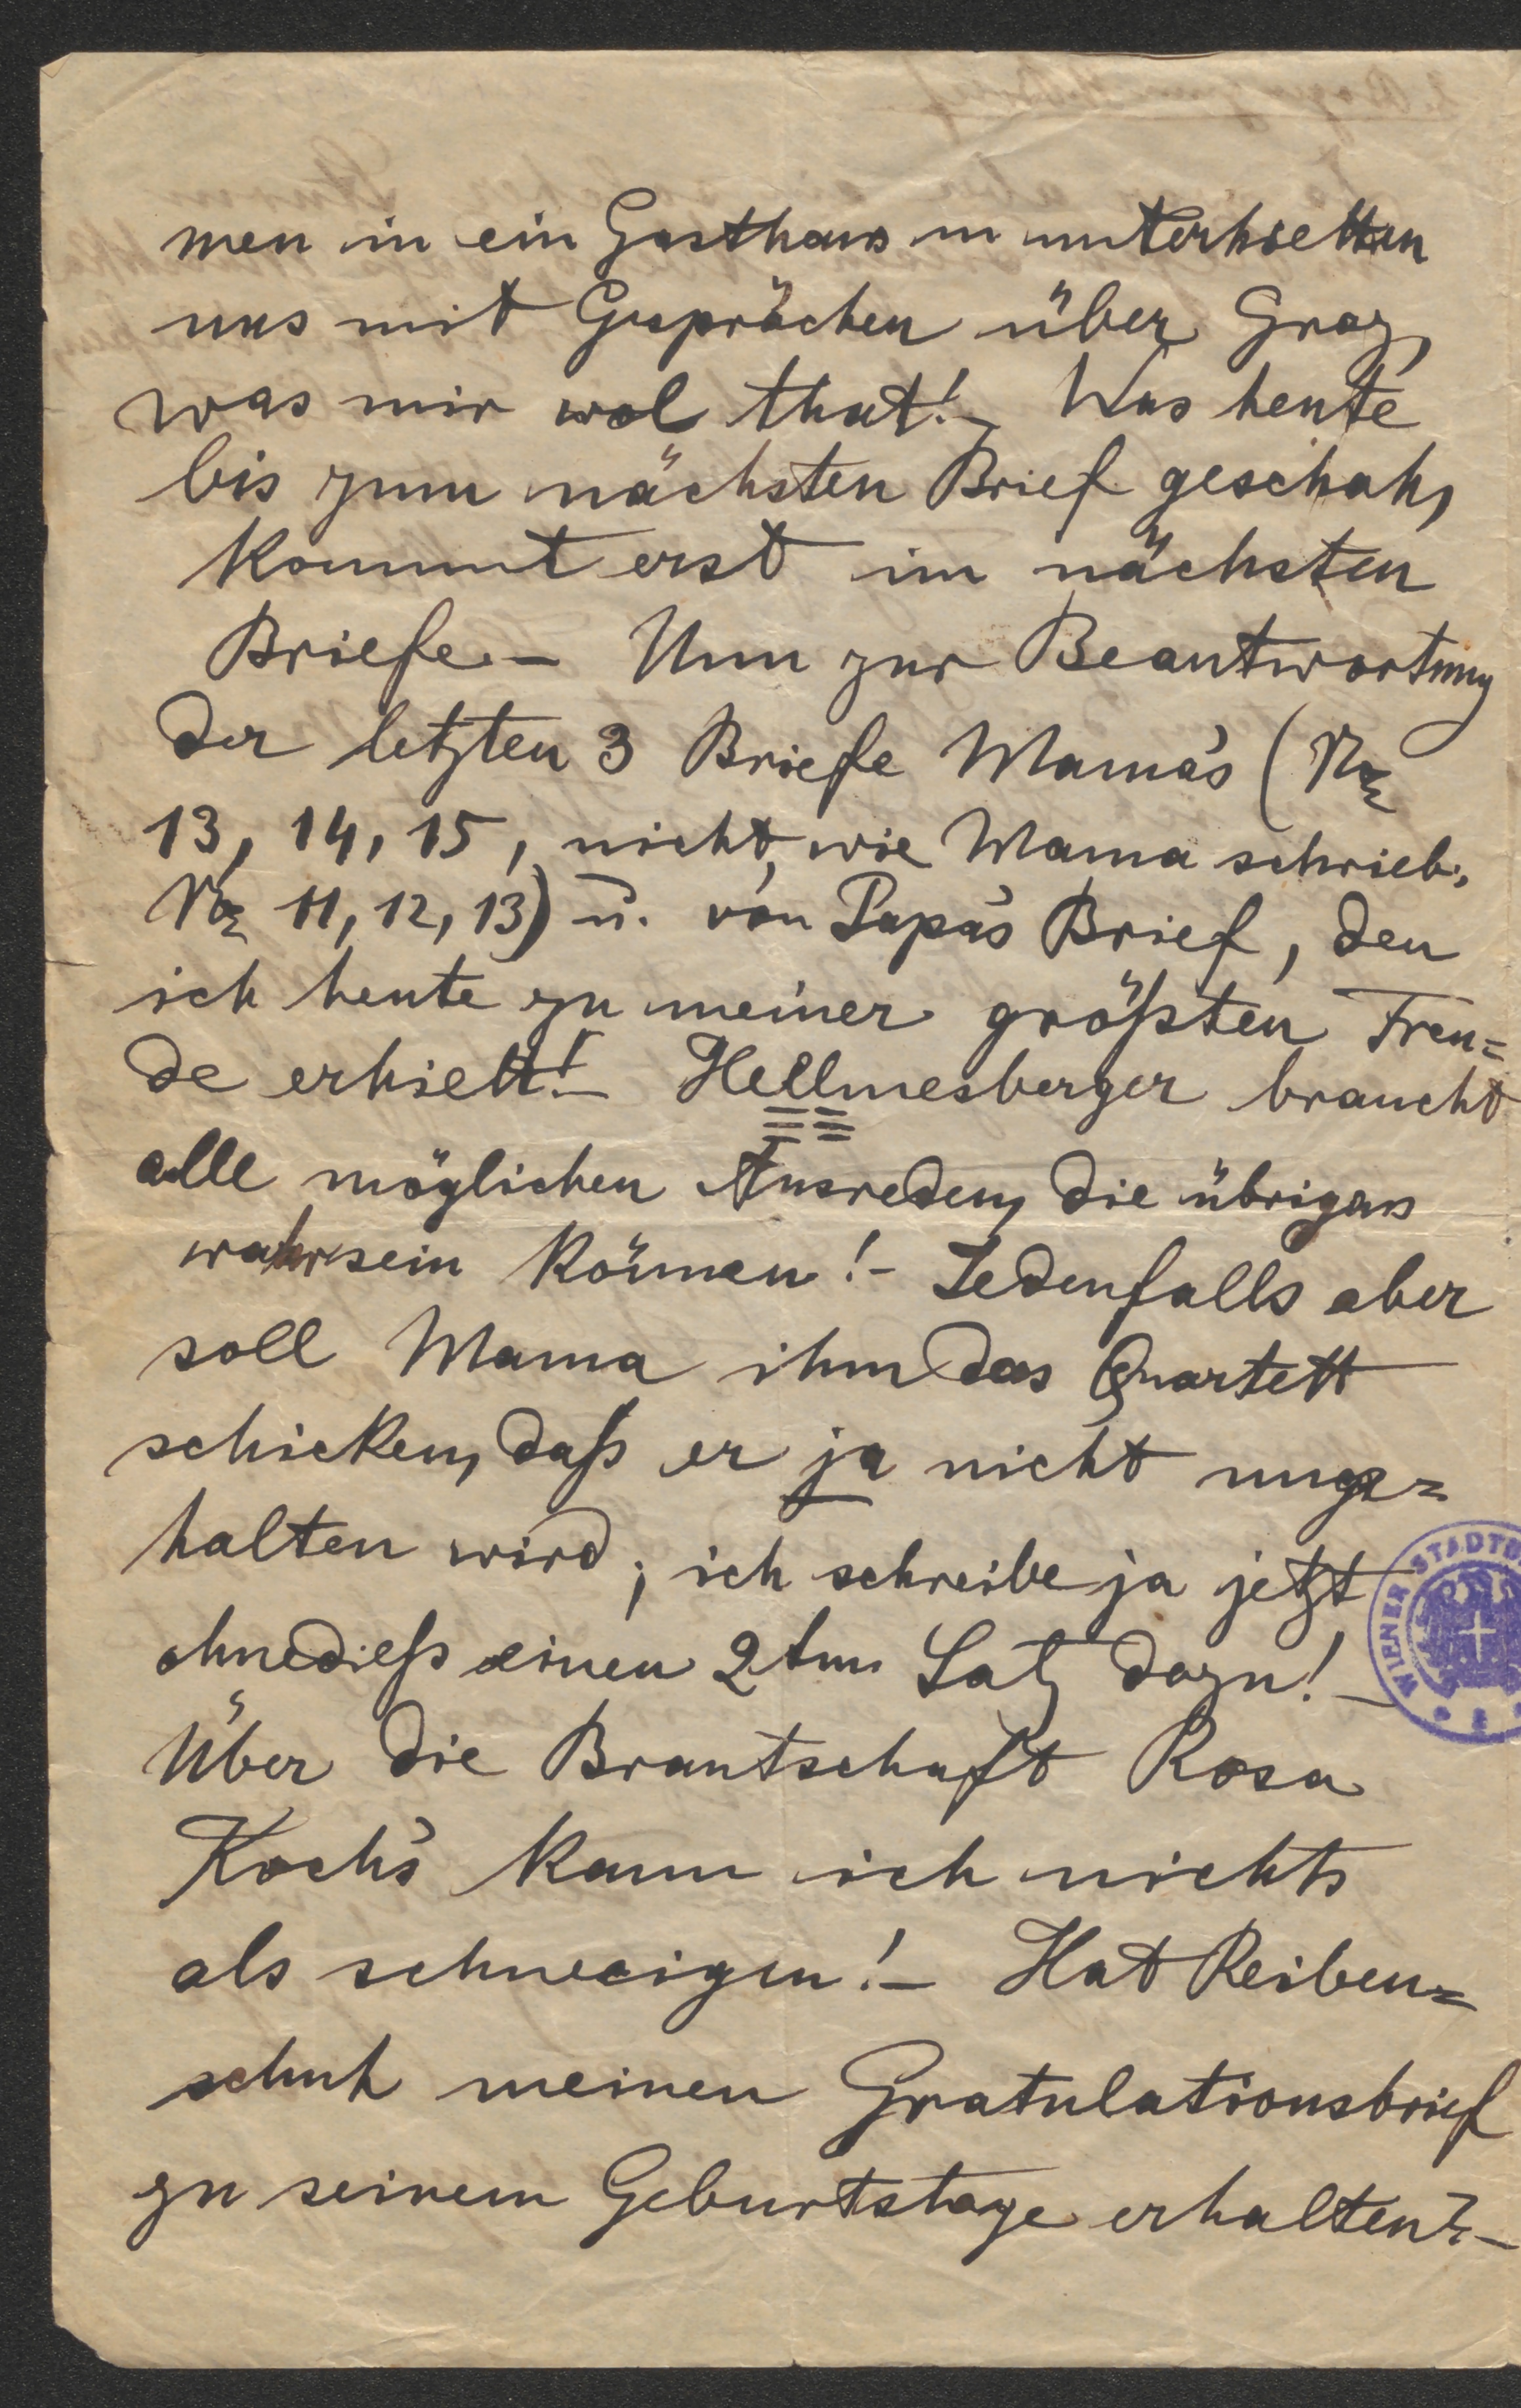 men in ein Gasthaus u unterhielten
uns mit Gesprächen über Graz,
was mir wol that! – Was heute
bis zum nächsten Brief geschah,
kommt erst im nächsten
Briefe. – Nun zur Beantwortung
der letzten 3 Briefe Mama's (Nr
13, 14, 15, nicht, wie Mama schrieb,
Nr 11, 12, 13) u. von Papa's Brief, den
ich heute zu meiner größten Freu=
de erhielt! – Hellmesberger braucht
alle möglichen Ausreden, die übrigens
wahr sein können! – Jedenfalls aber
soll Mama ihm das Quartett
schicken, daß er ja nicht unge=
halten wird; ich schreibe ja jetzt
ohnedieß einen 2ten Satz dazu! –
Über die Brautschaft Rosa
Koch's kann ich nichts
als schweigen! – Hat Reiben=
schuh meinen Gratulationsbrief
zu seinem Geburtstage erhalten? –
WIENER STADTB